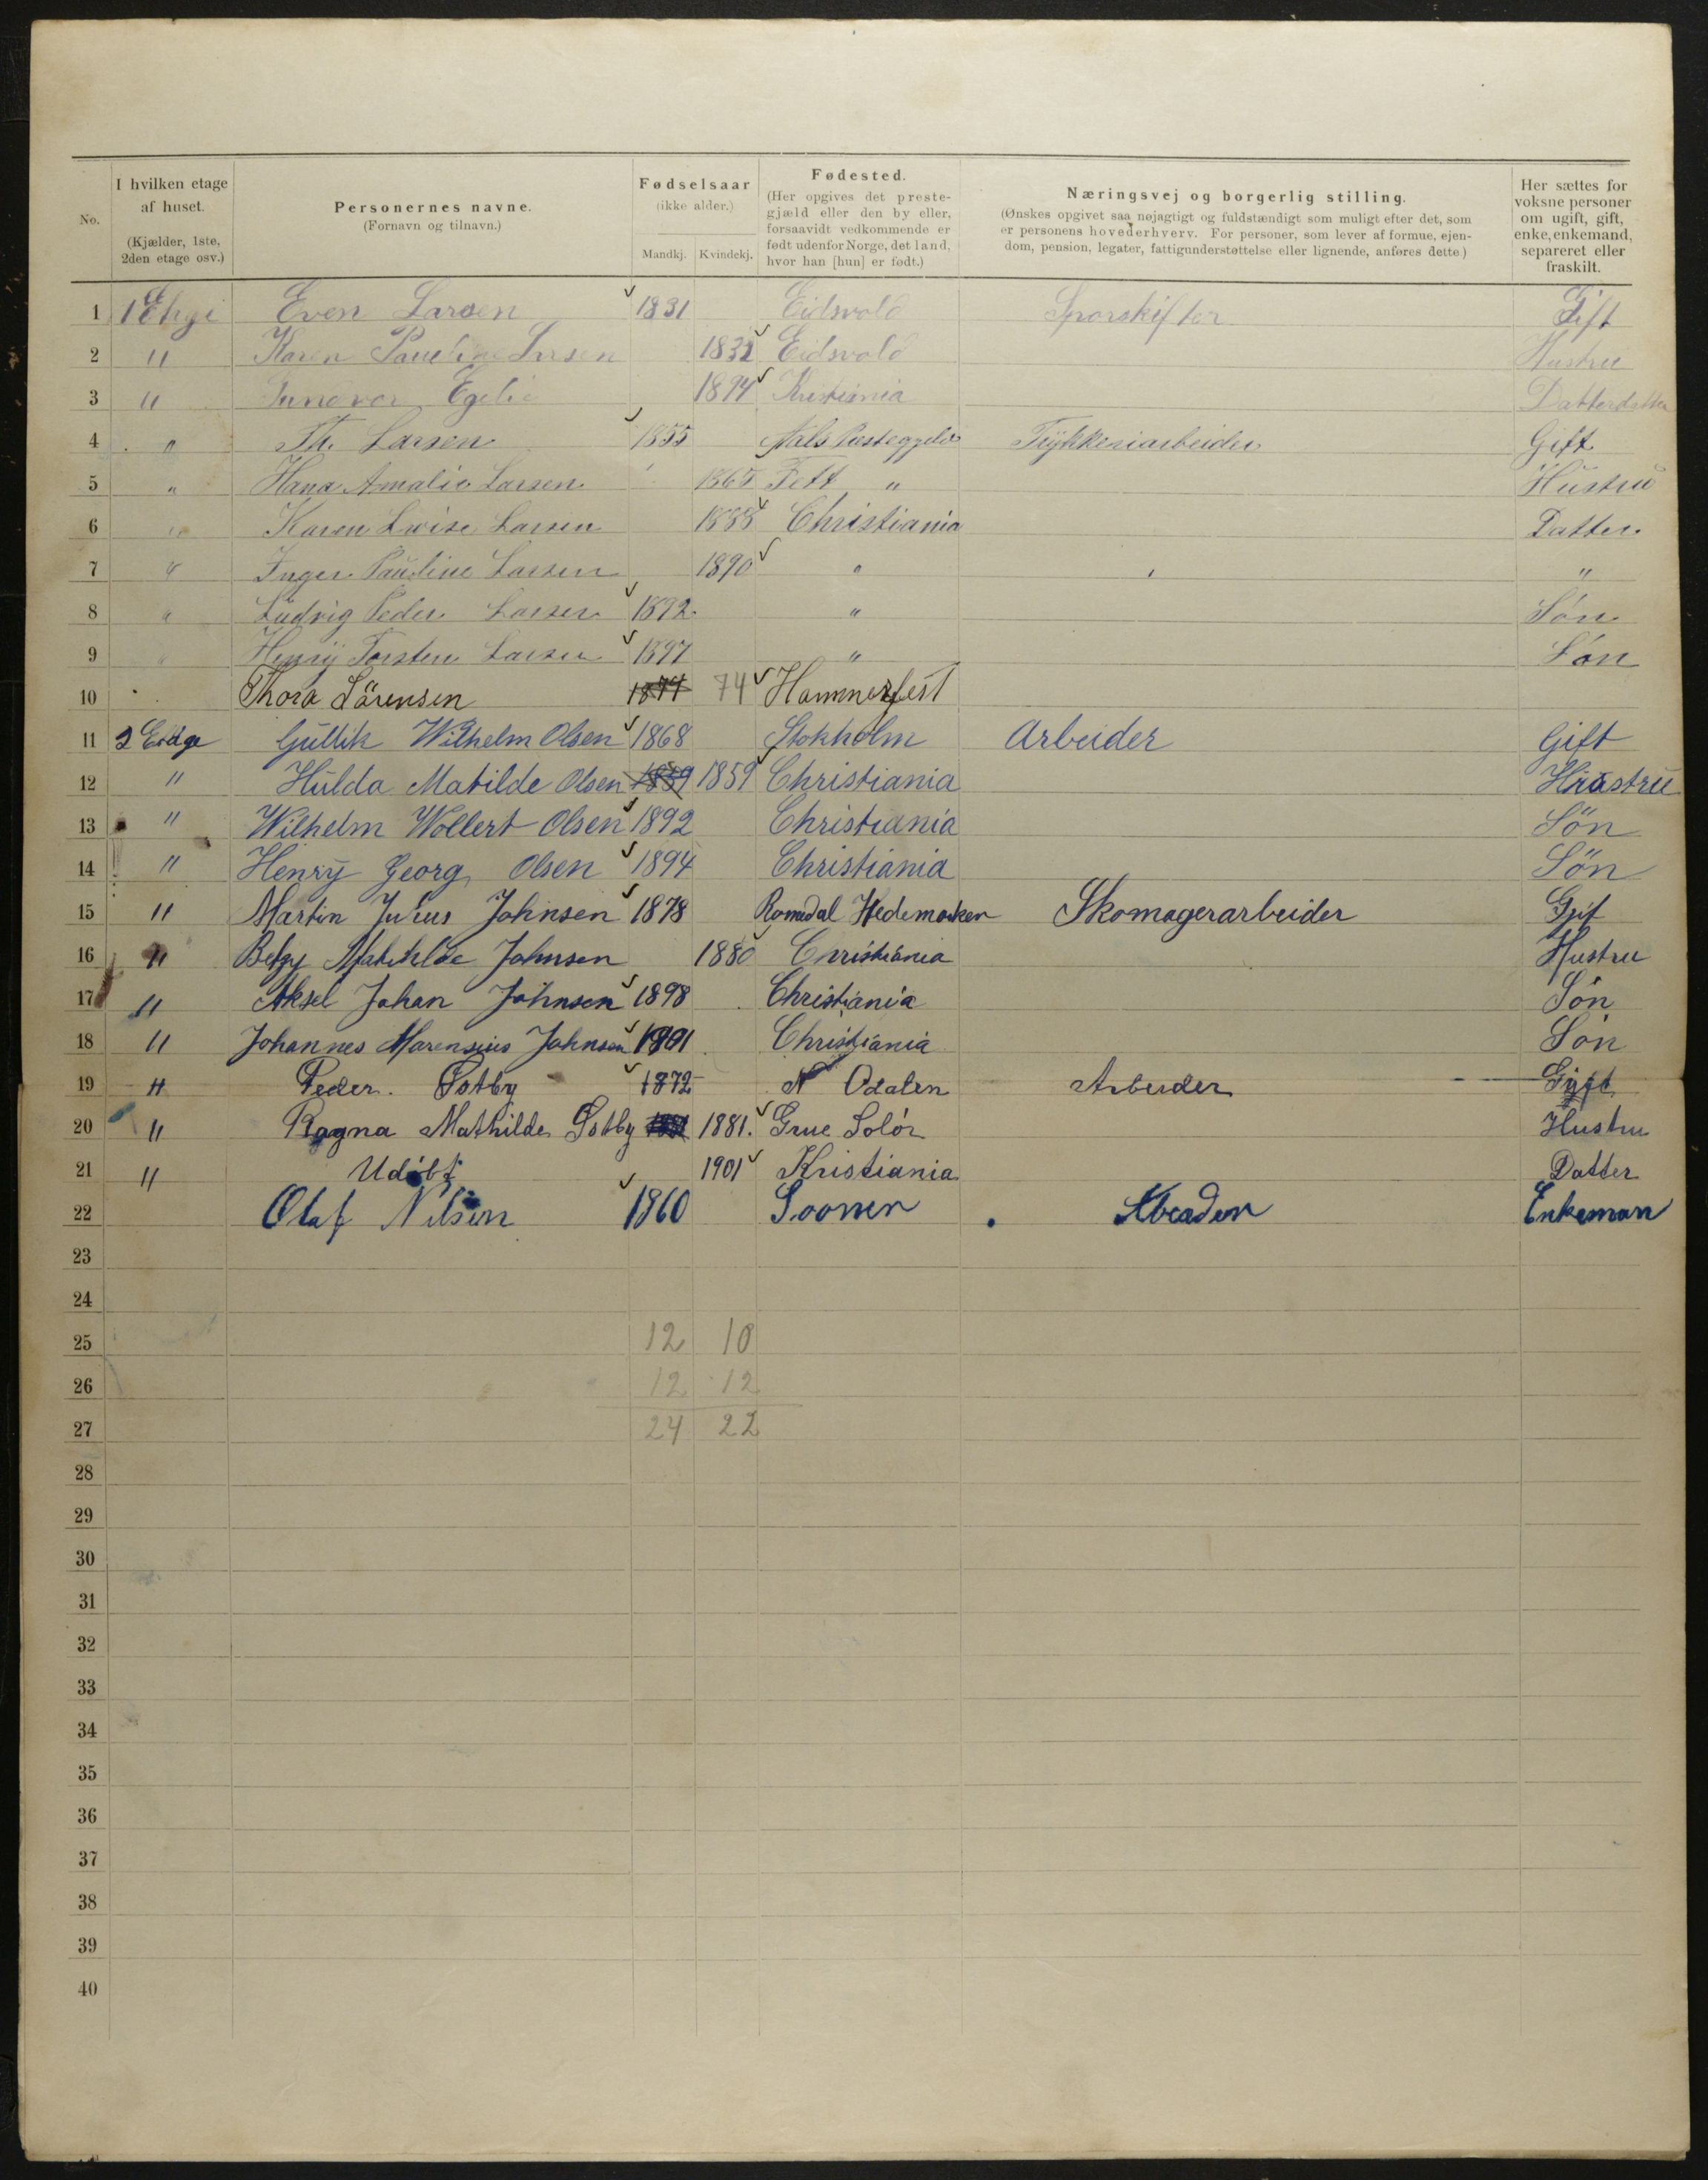 No.
I hvilken etage af huset.
(Kjælder, 1ste, 2den etage osv.)
Personernes navne.
(Fornavn og tilnavn.)
Fødselsaar
(ikke alder.)
Mandkj. Kvindekj.
Fødested.
(Her opgives det prestegjæld eller den by eller, forsaavidt vedkommende er født udenfor Norge, det land, hvor han [hun] er født.)
Næringsvej og borgerlig stilling.
(Ønskes opgivet saa nøjagtigt og fuldstændigt som muligt efter det, som er personens hovederhverv. For personer, som lever af formue, ejendom, pension, legater, fattigunderstøttelse eller lignende, anføres dette.)
Her sættes for voksne personer om ugift, gift, enke, enkemand, separeret eller fraskilt.
1 Even Larsen 1831 Eidsvold Sporskifter Gift
2 " Karen Pauline Larsen 1832 Eidsvold Hustru
3 " 1894 Kristiania Datterdatter
4 " Th. Larsen 1855 Trykkeriarbeider Gift
5 " Hana Amalie Larsen 1865 Fett " Hustru
6 " Karen Lovise Larsen 1888 Christiania Datter
7 " Inger Pauline Larsen 1890 " "
8 " Ludvig Peder Larsen 1892 " Søn
9 " Henrÿ Torsten Larsen 1897 " Søn
10 Thora Sörensen 1874 74 Hammerfest
11 2 Güllik Wilhelm Olsen 1868 Stokholm Arbeider Gift
12 " Hulda Matilde Olsen 1859 1859 Christiania Hustru
13 " Wilhelm Wollert Olsen 1892 Christiania Sön
14 " Henrÿ Georg Olsen 1894 Christiania Sön
15 " Martin Julius Johnsen 1878 Romedal Hedemarken Skomagerarbeider Gift
16 " Betzy Mathilde Johnsen 1880 Christiania Hustru
17 " Aksel Johan Johnsen 1898 Christiania Sön
18 " Johannes Marensius Johnsen 1901 Christiania Søn
19 " Peder Østby 1872 N Odalen Arbeider Gift
20 " Ragna Mathilde Østby 1881. Grue Solør Hustru
21 " Udøbt 1901 Kristiania Datter
22 Olaf Nilsen 1860 Enkeman
23
24
25 12 10
26 12 12
27 24 22
28
29
30
31
32
33
34
35
36
37
38
39
40